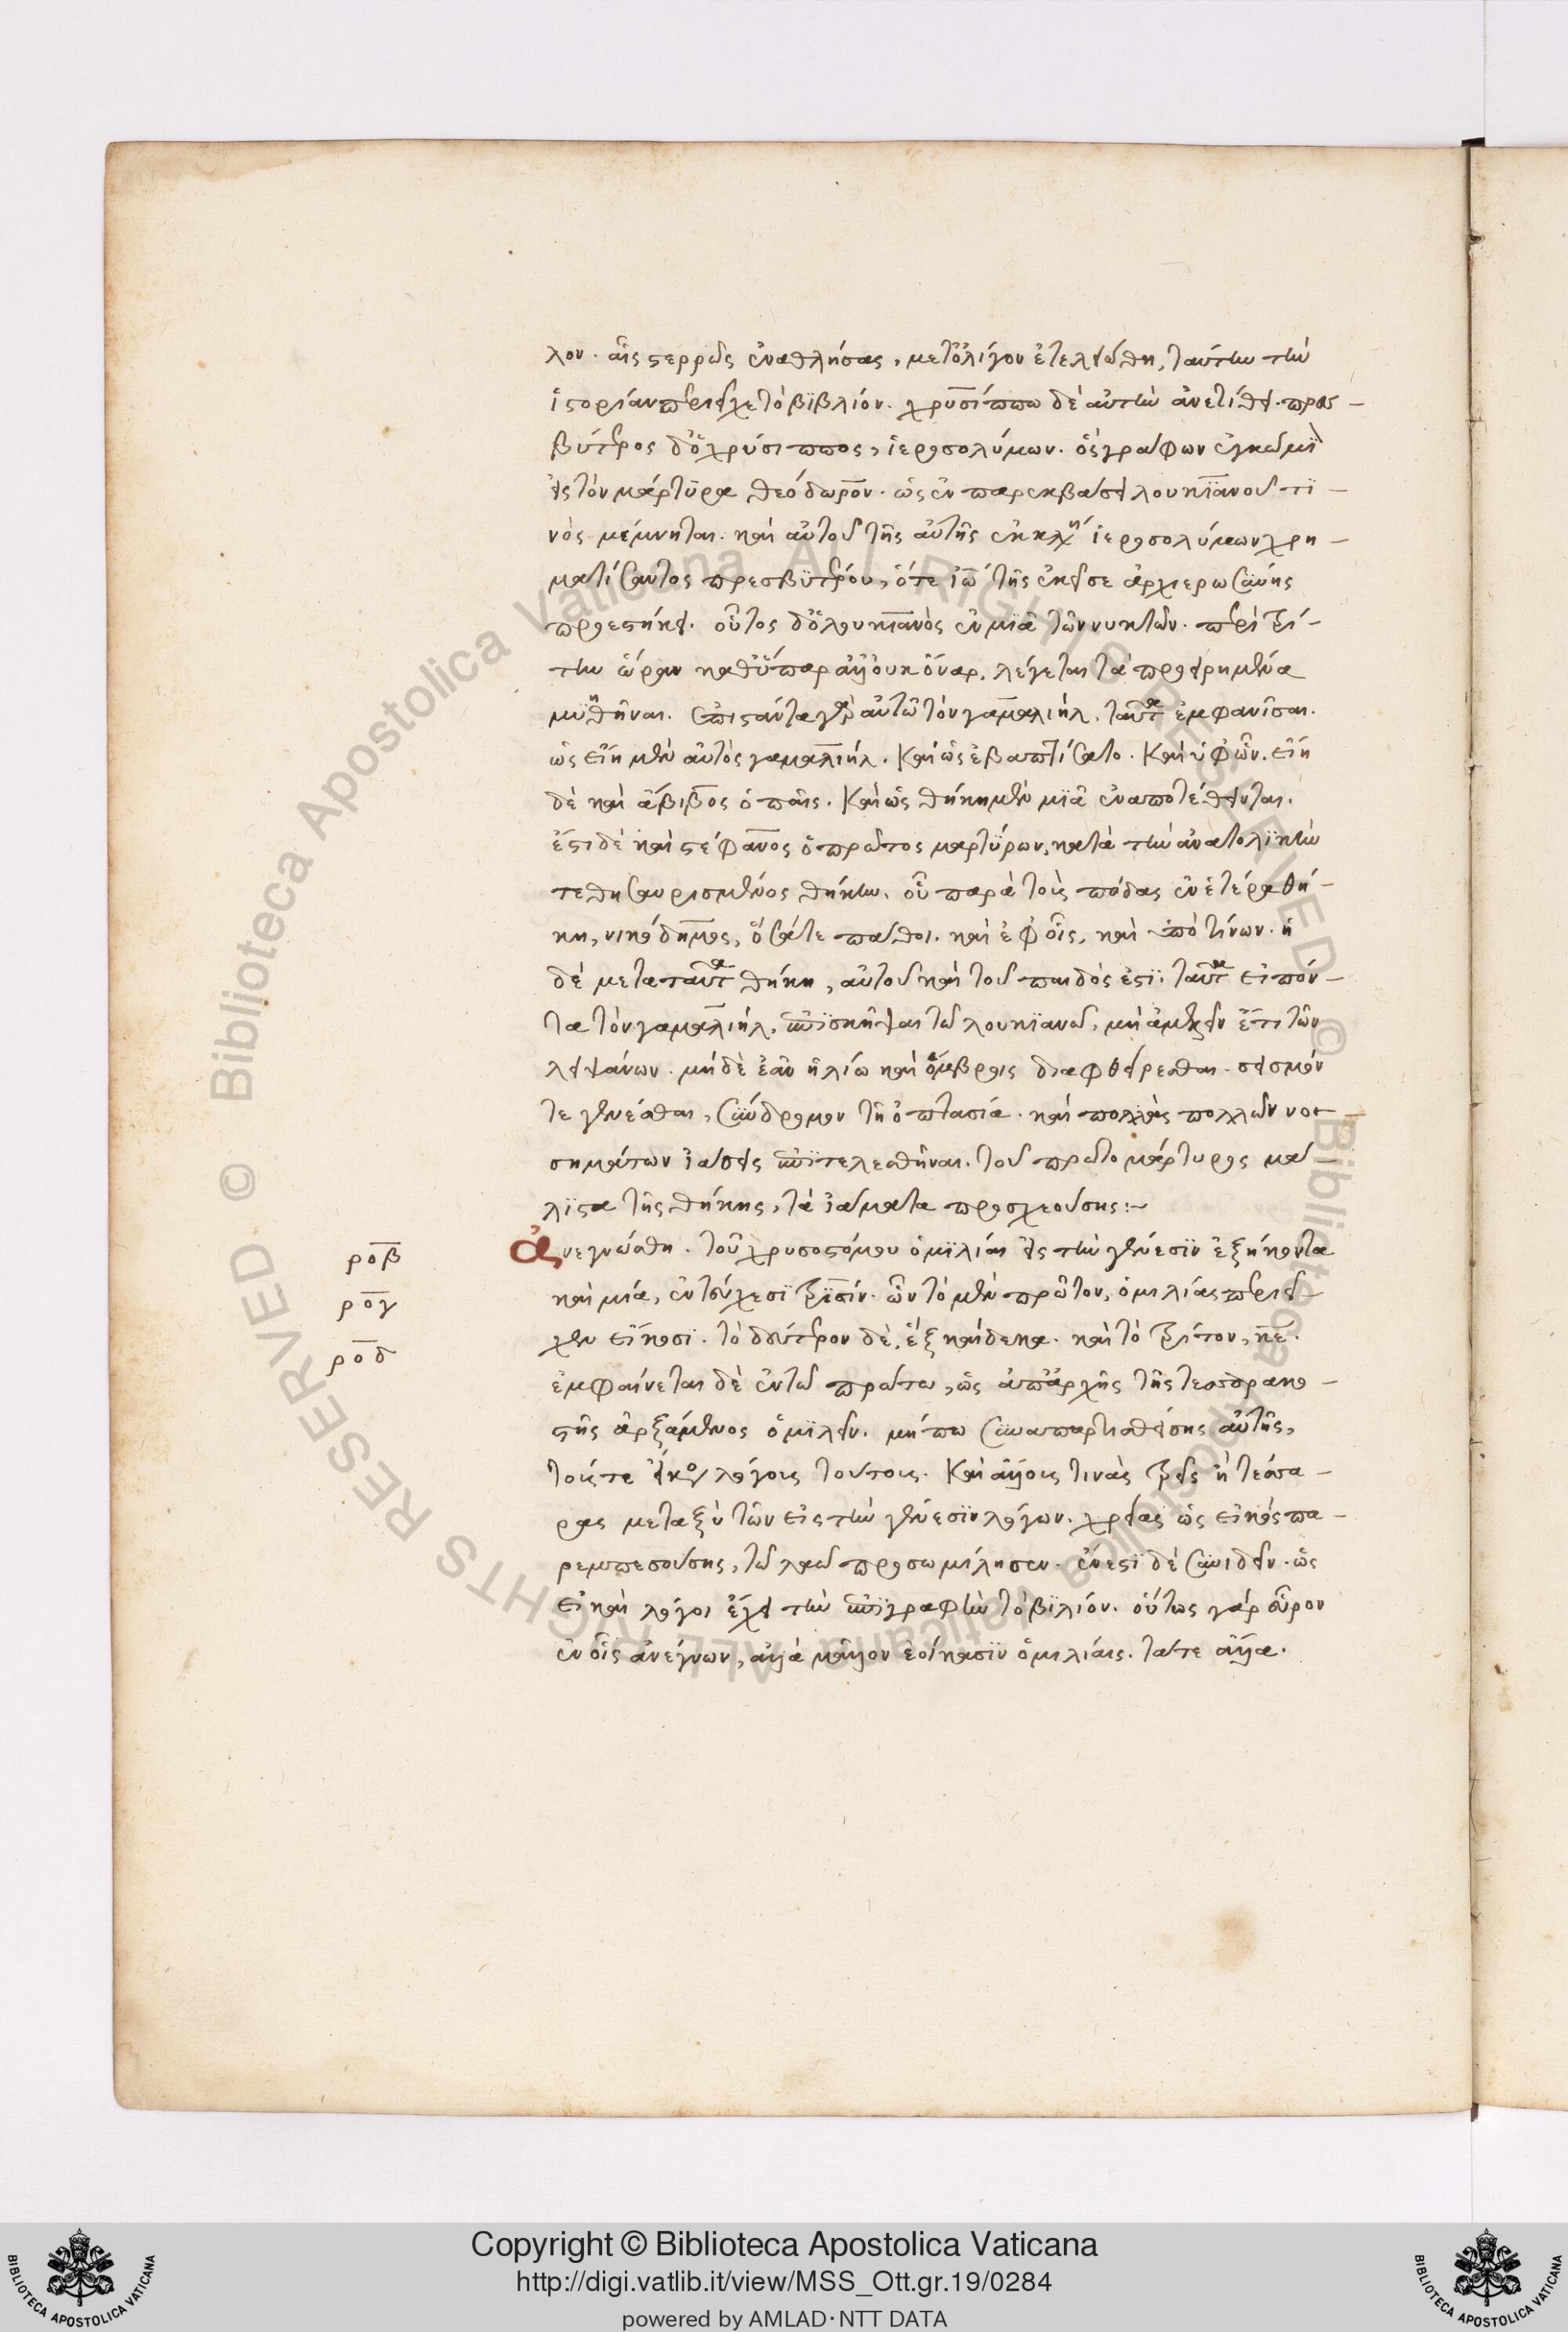 λον. αἷς στερρῶς ἐναθλήσας, μετ' ὀλίγον ἐτελειώθη, ταύτην τὴν
ἱστορίαν περιεῖχε τὸ βιβλίον. χρυσίππω δὲ αὐτὴν ἀνετίθει. πρεσ-
βύτερος δ' ὁ χρύσιππος, ἱεροσολύμων. ὃς γράφων ἐγκώμι
εἰς τὸν μάρτυρα θεόδωρον. ὡς ἐν παρεκβάσει λουκιανοῦ τι-
νὸς μέμνηται. καὶ αὐτοῦ τῆς αὐτῆς ἐκκλη ἱεροσολύμων χρη-
ματίσαντος πρεσβυτέρου, ὅτε ἰω τῆς ἐκεῖσε ἀρχιερωσύνης
προεστήκει. οὗτος δ' ὁ λουκιανὸς ἐν μιᾶ τῶν νυκτῶν. περὶ τρί-
την ὥραν καθ' ὕπαρ ἀλλ' οὐκ ὄναρ. λέγεται τὰ προειρημένα
μυηθῆναι. ἐπιστάντα γὰρ αὐτῶ τὸν γαμαλιήλ. ταῦτα ἐμφανίσαι.
ὡς εἴη μὲν αὐτὸς γαμαλιήλ. καὶ ὡς ἐβαπτίσατο. καὶ ὑφ' ὧν. εἴη
δὲ καὶ ἄβιβος ὁ παῖς. καὶ ὡς θήκη μὲν μιᾶ ἐναποτέθεινται.
ἔστι δὲ καὶ στέφανος ὁ πρῶτος μαρτύρων, κατὰ τὴν ἀνατολικὴν
τεθησαυρισμένος θήκην. οὗ παρὰ τοὺς πόδας ἐν ἑτέρα θή-
κη, νικόδημος, ὅσα τε πάθοι. καὶ ἐφ' οἷς, καὶ ὑπὸ τίνων. ἡ
δὲ μετὰ ταῦτα θήκη, αὐτοῦ καὶ τοῦ παιδὸς ἐστι. ταῦτα εἰπόν-
τα τὸν γαμαλιήλ. ἐπισκῆψαι τῶ λουκιανῶ, μὴ ἀμελεῖν ἔτι τῶν
λειψάνων. μὴ δὲ ἐᾶν ἡλίω καὶ ὄμβροις διαφθείρεσθαι. σεισμόν
τε γενέσθαι, σύνδρομον τῆ ὀπτασία. καὶ πολλὰς πολλῶν νο-
σημάτων ἰάσεις ἐπιτελεσθῆναι. τοῦ πρωτομάρτυρος μά-
λιστα τῆς θήκης, τὰ ἰάματα προσχεούσης:-
Ἀνεγνώσθη. τοῦ χρυσοστόμου ὁμιλίαι εἰς τὴν γένεσιν ἑξήκοντα
καὶ μία, ἐν τεύχεσι τρισίν. ὧν τὸ μὲν πρῶτον, ὁμιλίας περιεῖ-
χεν εἴκοσι. τὸ δεύτερον δὲ, ἑξκαίδεκα. καὶ τὸ τρίτον, κε.
ἐμφαίνεται δὲ ἐν τῶ πρώτω, ὡς ἀπ' ἀρχῆς τῆς τεσσαρακο-
στῆς ἀρξάμενος ὁμιλεῖν. μήπω συναπαρτισθείσης αὐτῆς,
τούς τε εἴκο λόγοις τούτοις. καὶ ἄλλους τινὰς τρεῖς ἢ τέσσα-
ρας μεταξὺ τῶν εἰς τὴν γένεσιν λόγων. χρείας ὡς εἰκός πα-
ρεμπεσούσης, τῶ λαῶ προσωμίλησεν. ἔνεστι δὲ συνιδεῖν. ὡς
εἰ καὶ λόγοι ἔχει τὴν ἐπιγραφὴν τὸ βιλίον. οὕτως γὰρ εὗρον
ἐν οἷς ἀνέγνων, ἀλλὰ μᾶλλον ἐοίκασιν ὁμιλίαις. τά τε ἄλλα.
ροβ
ρογ
ροδ
© Biblioteca Apostolica Vaticana ALL RIGHTS RESERVED
© Biblioteca Apostolica Vaticana ALL RIGHTS RESERVED
Copyright © Biblioteca Apostolica Vaticana
http://digi.vatlib.it/view/MSS_Ott.gr.19/0284
powered by AMLAD·NTT DATA
BIBLIOTECA APOSTOLICA VATICANA
BIBLIOTECA APOSTOLICA VATICANA